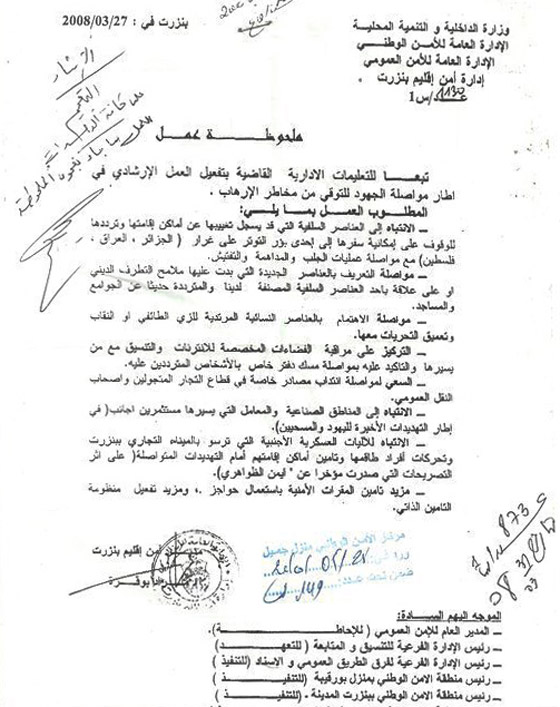 وزارة الداخلية و التنمية المحلية
الإدارة العامة للأمن الوطني
الإدارة العامة للأمن العمومي
إدارة أمن إقليم بنزرت
بنزرت في : 2008/03/27
ملحوظة عمل
تبعا للتعليمات الادارية القاضية بتفعيل العمل الإرشادي في
اطار مواصلة الجهود للتوقي من مخاطر الإرهاب .
المطلوب العمل بما يلي:
ــ الانتباه إلى العناصر السلفية التي قد يسجل تغيبها عن أماكن إقامتها وترددها
للوقوف على إمكانية سفرها إلى إحدى بؤر التوتر على غرار ( الجزائر ، العراق ،
فلسطين) مع مواصلة عمليات الجلب والمداهمة والتفتيش.
ــ مواصلة التعريف بالعناصر الجديدة التي بدت عليها ملامح التطرف الديني
او على علاقة باحد العناصر السلفية المصنفة لدينا والمترددة حديثا عن الجوامع
والمساجد.
ــ مواصلة الاهتمام بالعناصر النسائية المرتدية للزي الطائفي او النقاب
وتعميق التحريات معها.
ــ التركيز على مراقبة الفضاءات المخصصة للانترنات والتنسيق مع من
يسيرها والتاكيد عليه بمواصلة مسك دفتر خاص بالأشخاص المترددين عليه.
ــ السعي لمواصلة انتداب مصادر خاصة في قطاع التجار المتجولين واصحاب
النقل العمومي.
ــ الانتباه إلى المناطق الصناعية والمعامل التي يسيرها مستثمرين اجانب( في
إطار التهديدات الأخيرة لليهود والمسحيين).
ــ الانتباه للآليات العسكرية الأجنبية التي ترسو بالميناء التجاري ببنزرت
وتحركات أفراد طاقمها وتامين أماكن إقامتهم أمام التهديدات المتواصلة( على اثر
التصريحات التي صدرت مؤخرا عن " ايمن الظواهري).
ــ مزيد تامين المقرات الأمنية باستعمال حواجز .، ومزيد تفعيل منظومة
التامين الذاتي.
من إقليم بنزرت
بوقرة
مركز الأمن الوطني منزل جميل
ضمن تحت عدد
الموجه اليهم السادة:
ــ المدير العام للامن العمومي ( للإحاطة).
ــ رئيس الإدارة الفرعية للتنسيق و المتابعة ( للتعهد)
ــ رئيس الإدارة الفرعية لفرق الطريق العمومي و الاسناد (للتنفيذ )
ــ رئيس منطقة الامن الوطني بمنزل بورقيبة (للتنفيذ )
ــ رئيس منطقة الامن الوطني ببنزرت المدينة . (للتنفيذ )